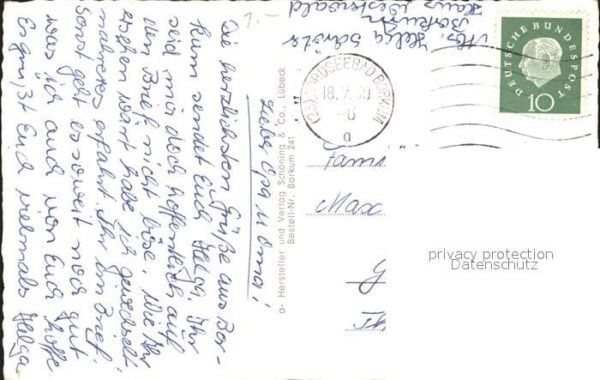 Abs. Helga Schütz
Borkum
Haus Westerwald
1.-
Lieber Opa u Oma!
Die herzlichsten Grüße aus Bor-
kum sendet Euch Helga. Ihr
seid mir doch hoffentlich auf
den Brief nicht böse. Wie Ihr
ersehen könnt habe ich gewechselt
näheres erfahrt Ihr im Brief.
Sonst geht es soweit noch gut
was ich auch von Euch hoffe
Es grüßt Euch vielmals Helga
a- Hersteller und Verlag Schöning & Co., Lübeck
Bestell-Nr. Borkum 241
NORDSEEBAD BORKUM
18. 59
a
DEUTSCHE BUNDESPOST
10
Fami
Max
privacy protection
Datenschutz